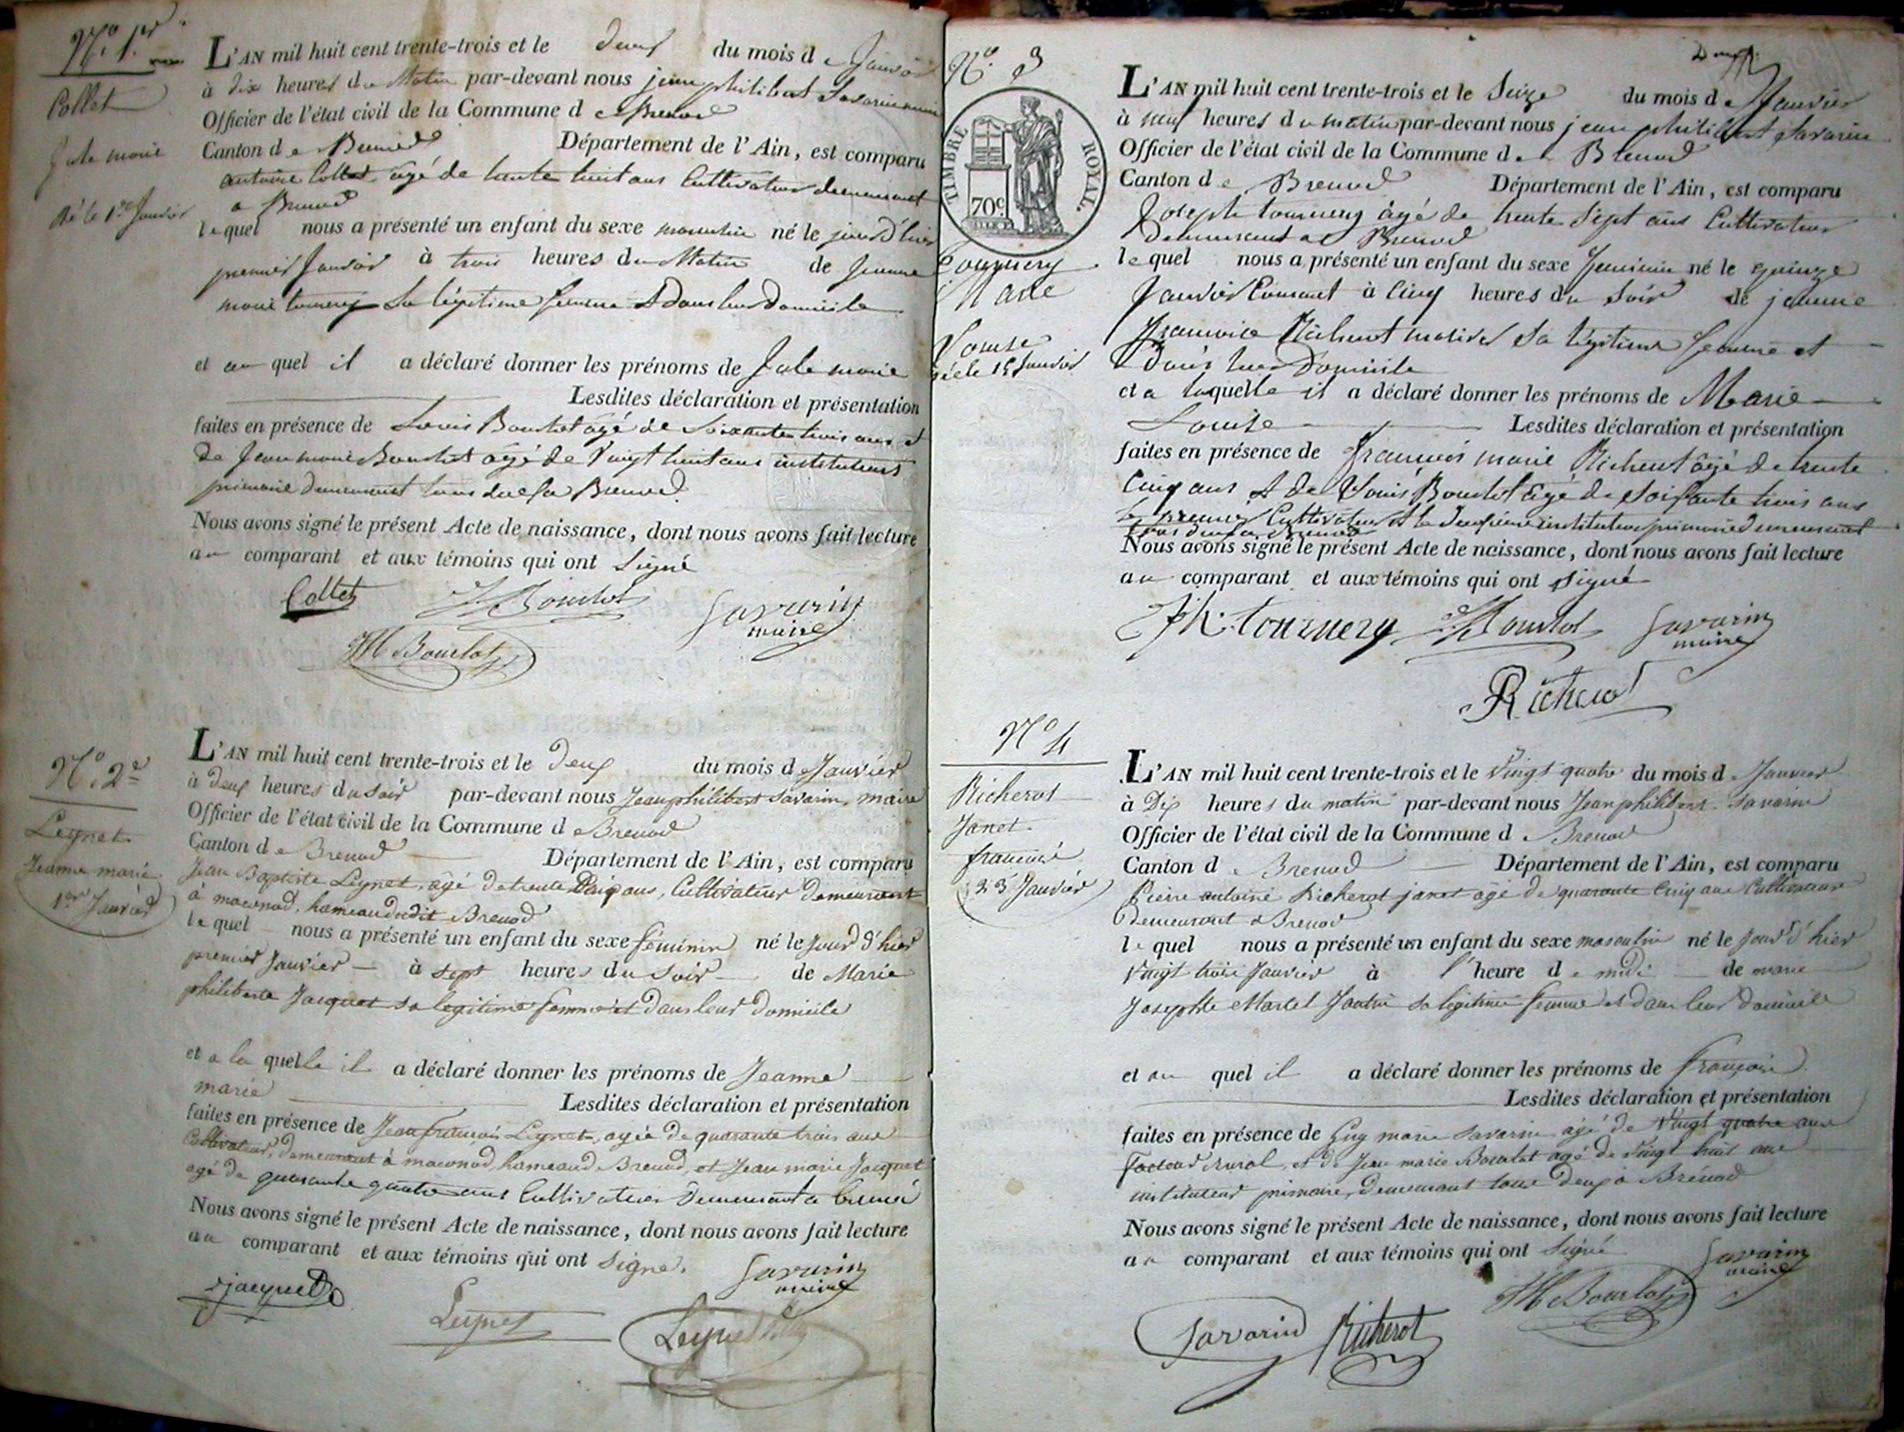 N.º 1.er
Collet
Jule marie
Né le 1er Janvier
L'AN mil huit cent trente-trois et le deux du mois de Janvier
à dix heures du Matin par-devant nous jean philibert Savarin maire
Officier de l'état civil de la Commune de Brenod
Canton de Brenod Département de l'Ain, est comparu
antoine Collet âgé de trente huit ans Cultivateur demeurant
a Brenod
lequel nous a présenté un enfant du sexe masculin né le jour d'hier
premier Janvier à trois heures du Matin de Jeanne
marie tournery Sa légitime femme & dans leur domicile
et au quel il a déclaré donner les prénoms de Jule marie
Lesdites déclaration et présentation
faites en présence de Louis Bourlot âgé de Soixante trois ans et
de Jean marie Bourlot âgé de Vingt huit ans instituteurs
primaire demeurant tous deux a Brenod.
Nous avons signé le présent Acte de naissance, dont nous avons fait lecture
au comparant et aux témoins qui ont Signé
Collet Bourlot Savarin
maire
JM Bourlot
N.º 2e
Leynet
Jeanne marie
1er Janvier
L'AN mil huit cent trente-trois et le deux du mois de Janvier
à deux heures du soir par-devant nous Jean philibert Savarin, maire
Officier de l'état civil de la Commune de Brenod
Canton de Brenod Département de l'Ain, est comparu
Jean Baptiste Leynet, âgé de trente ans, Cultivateur demeurant
à maconod, hameau dudit Brenod
lequel nous a présenté un enfant du sexe féminin né le jour d'hier
premier Janvier à sept heures du soir de Marie
philiberte Jacquet sa légitime femme et dans leur domicile
et a la quelle il a déclaré donner les prénoms de Jeanne
marie Lesdites déclaration et présentation
faites en présence de Jean françois Leynet, agée de quarante trois ans
Cultivateur, demeurant à maconod, hameau de Brenod, et Jean marie Jacquet
agé de quarante quatre ans Cultivateur Demeurant a Brenod
Nous avons signé le présent Acte de naissance, dont nous avons fait lecture
au comparant et aux témoins qui ont signé.
Savarin
maire
Jacquet
Leynet Leynet
Deux
N.º 3
TIMBRE ROYAL.
70c
Tournery
Marie
Louise
Née le 15 Janvier
L'AN mil huit cent trente-trois et le Seize du mois de Janvier
à neuf heures du matin par-devant nous jean philibert Savarin
Officier de l'état civil de la Commune de Brenod
Canton de Brenod Département de l'Ain, est comparu
Joseph tournery âgé de trente Sept ans Cultivateur
Demeurant a Brenod
lequel nous a présenté un enfant du sexe feminin né le quinze
Janvier Courant à Cinq heures du Soir de jeanne
françoise Richerot Sa légitime femme et
Dans leur Domicile
et a laquelle il a déclaré donner les prénoms de Marie
Louise Lesdites déclaration et présentation
faites en présence de françois marie Richerot âgé de trente
Cinq ans & de Louis Bourlot âgé de Soixante trois ans
Le premier Cultivateur & le Deuxième instituteur primaire demeurant
tous deux a Brenod
Nous avons signé le présent Acte de naissance, dont nous avons fait lecture
au comparant et aux témoins qui ont signé
Jh. Tournery Bourlot Savarin
maire
Richerot
N.º 4
Richerot
Janet
françois
23 Janvier
L'AN mil huit cent trente-trois et le Vingt quatre du mois de Janvier
à Dix heures du matin par-devant nous Jean philibert Savarin
Officier de l'état civil de la Commune de Brenod
Canton de Brenod Département de l'Ain, est comparu
Pierre antoine Richerot janet âgé de quarante Cinq ans Cultivateur
Demeurant a Brenod
lequel nous a présenté un enfant du sexe masculin né le jour d'hier
Vingt trois Janvier à l'heure de midi de marie
Josephte Martel sa légitime femme et dans leur domicile
et au quel il a déclaré donner les prénoms de françois
Lesdites déclaration et présentation
faites en présence de Guy marie Savarin agé de Vingt quatre ans
facteur rural, et de Jean marie Bourlot agé de vingt huit ans
instituteur primaire, demeurant tous deux à Brénod
Nous avons signé le présent Acte de naissance, dont nous avons fait lecture
au comparant et aux témoins qui ont Signé
Savarin
maire
JM Bourlot
Savarin Richerot